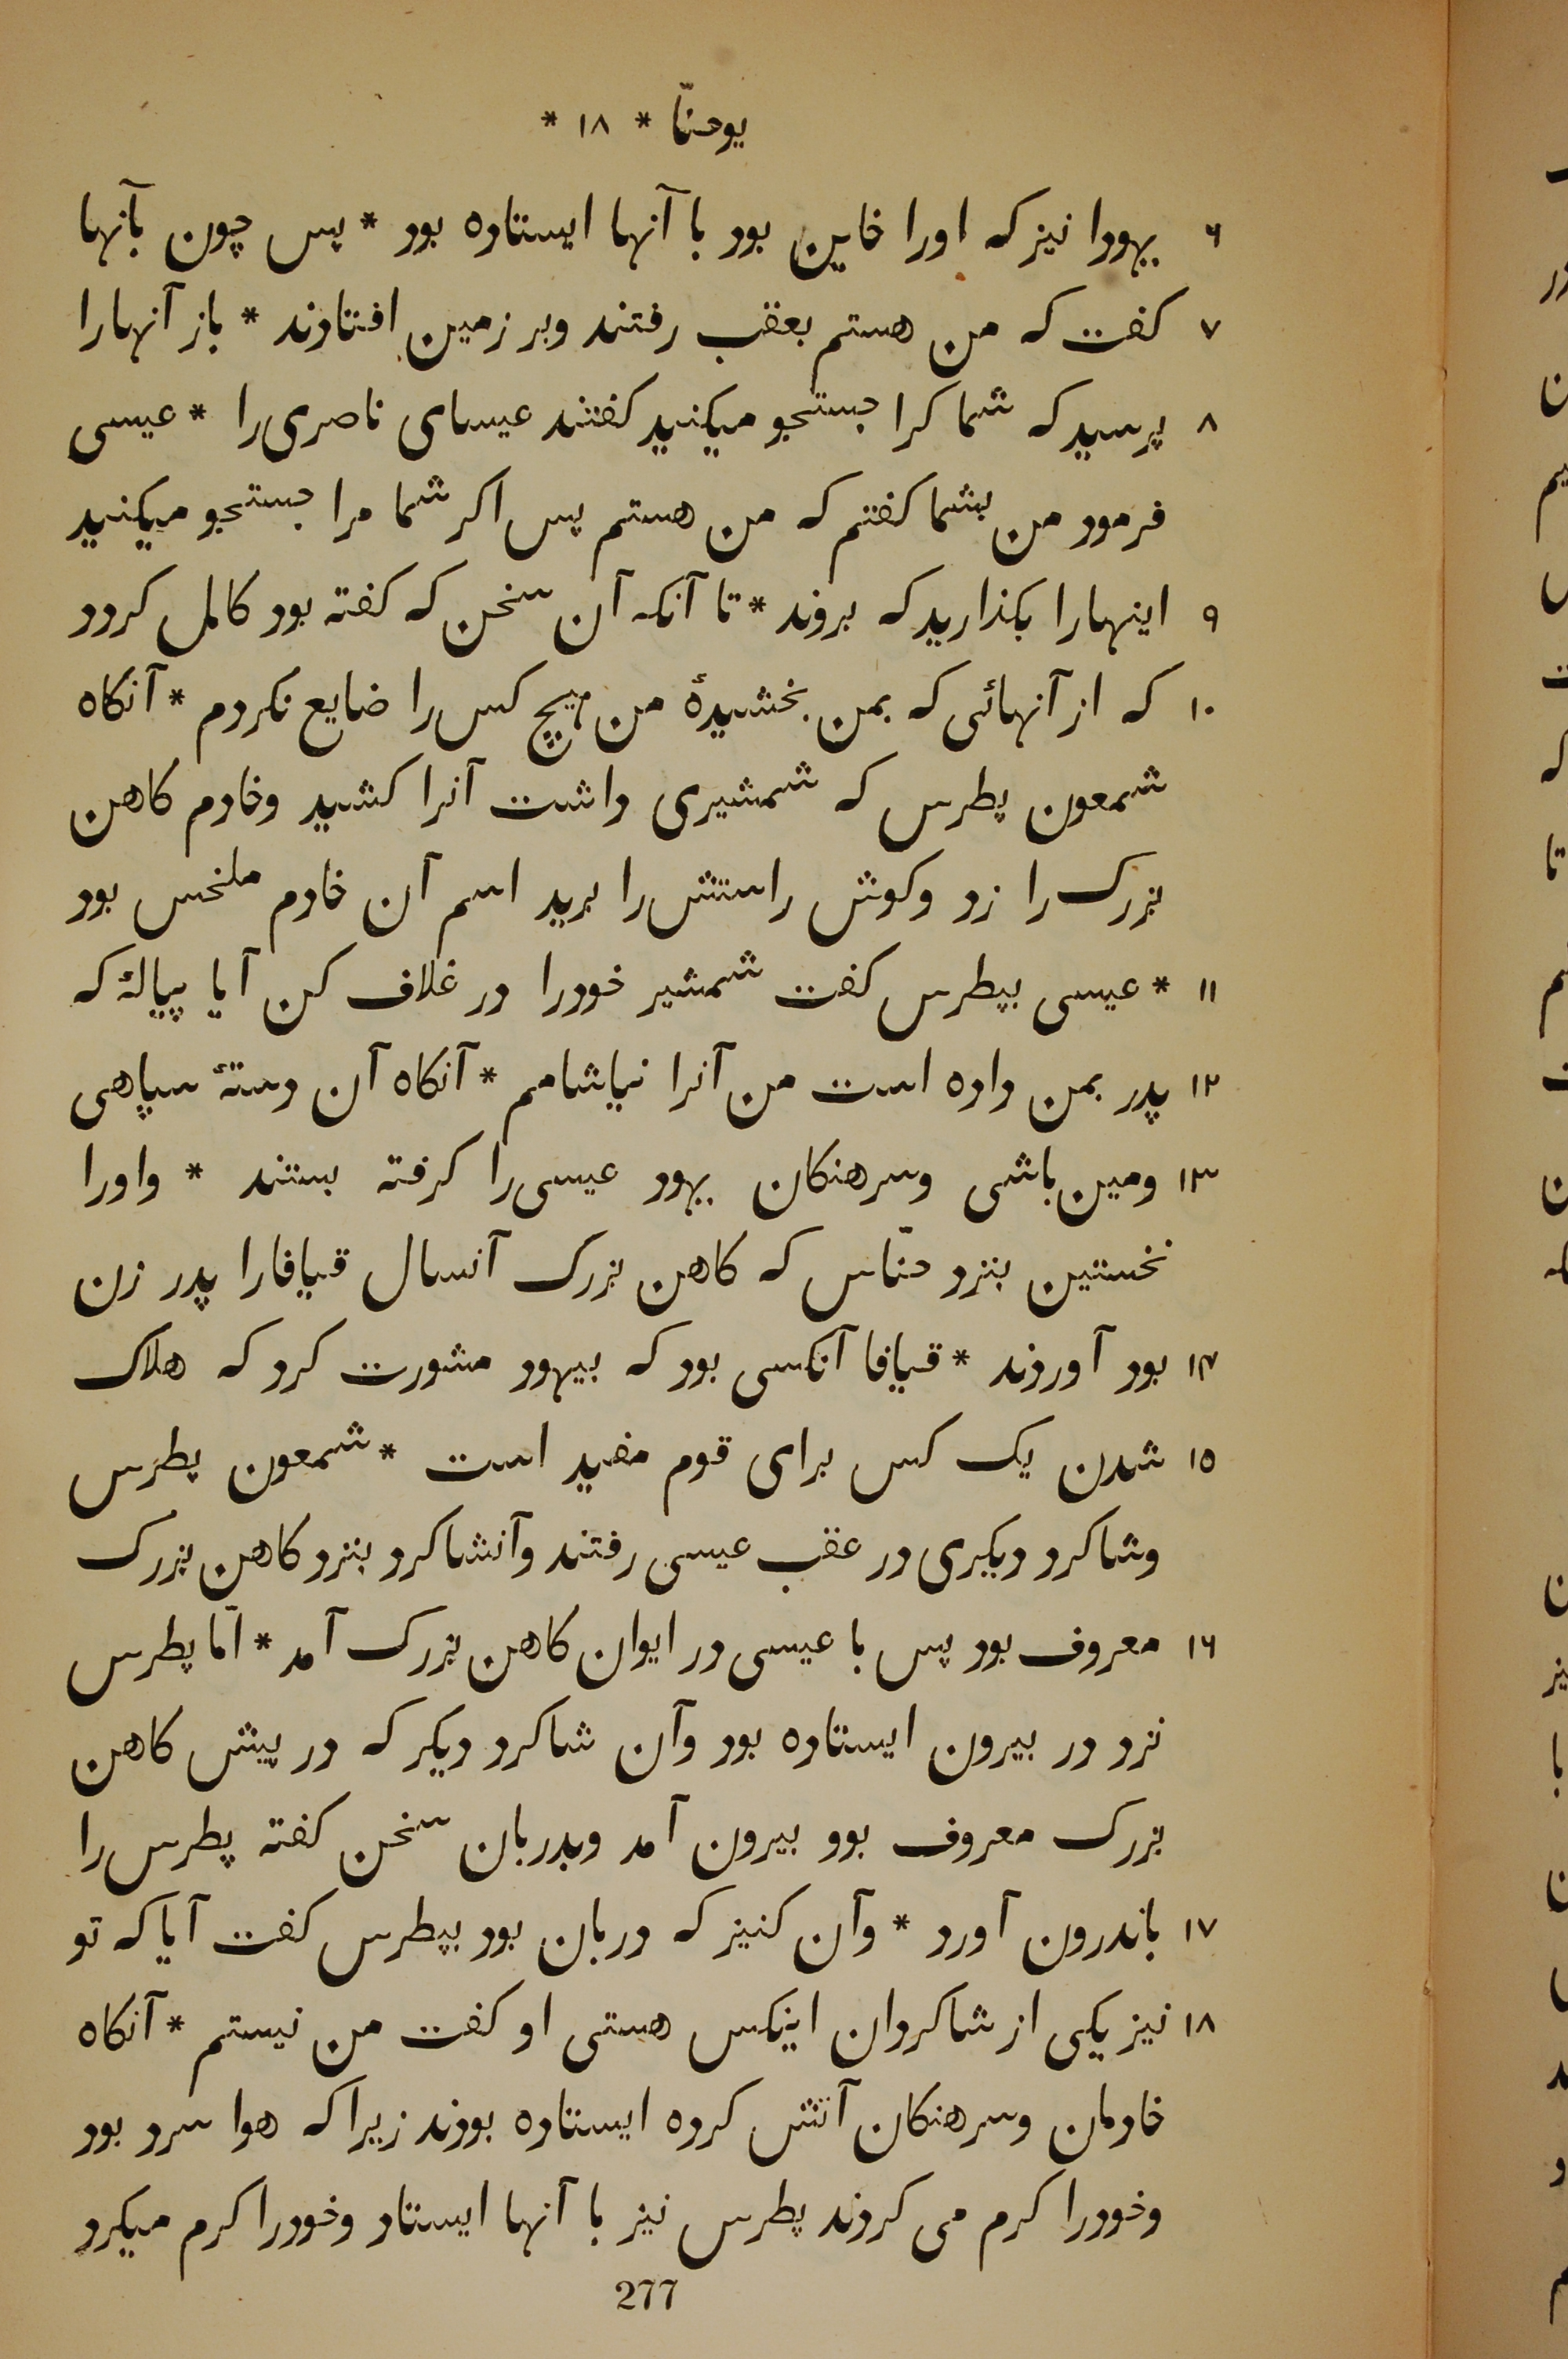 یوحنّا * ١٨ *
٦ یهودا نیز که اورا خاین بود با آنها ایستاده بود * پس چون بآنها
٧ کفت که من هستم بعقب رفتند وبر زمین افتادند * باز آنهارا
٨ پرسید که شما کرا جستجو میکنید کفتند عیسای ناصری را * عیسی
فرمود من بشما کفتم که من هستم پس اکر شما مرا جستجو میکنید
٩ اینهارا بکذارید که بروند * تا آنکه آن سخن که کفته بود کامل کردد
١٠ که از آنهائی که بمن بخشیدهٔ من هیچ کس را ضایع نکردم * آنکاه
شمعون پطرس که شمشیری داشت آنرا کشید وخادم کاهن
بزرک را زد وکوش راستش را برید اسم آن خادم ملخس بود
١١ * عیسی بپطرس کفت شمشیر خودرا در غلاف کن آیا پیالهٔ که
١٢ پدر بمن داده است من آنرا نیاشامم * آنکاه آن دستهٔ سپاهی
١٣ ومین باشی وسرهنکان یهود عیسی را کرفته بستند * واورا
نخستین بنزد حنّاس که کاهن بزرک آنسال قیافارا پدر زن
١۴ بود آوردند * قیافا آنکسی بود که بیهود مشورت کرد که هلاک
١٥ شدن یک کس برای قوم مفید است * شمعون پطرس
وشاکرد دیکری در عقب عیسی رفتند وآنشاکرد بنزد کاهن بزرک
١٦ معروف بود پس با عیسی در ایوان کاهن بزرک آمد * امّا پطرس
نزد در بیرون ایستاده بود وآن شاکرد دیکر که در پیش کاهن
بزرک معروف بوو بیرون آمد وبدربان سخن کفته پطرس را
١٧ باندرون آورد * وآن کنیز که دربان بود بپطرس کفت آیا که تو
١٨ نیز یکی از شاکردان اینکس هستی او کفت من نیستم * آنکاه
خادمان وسرهنکان آتش کرده ایستاده بودند زیرا که هوا سرد بود
وخودرا کرم می کردند پطرس نیز با آنها ایستاد وخودرا کرم میکرد
277